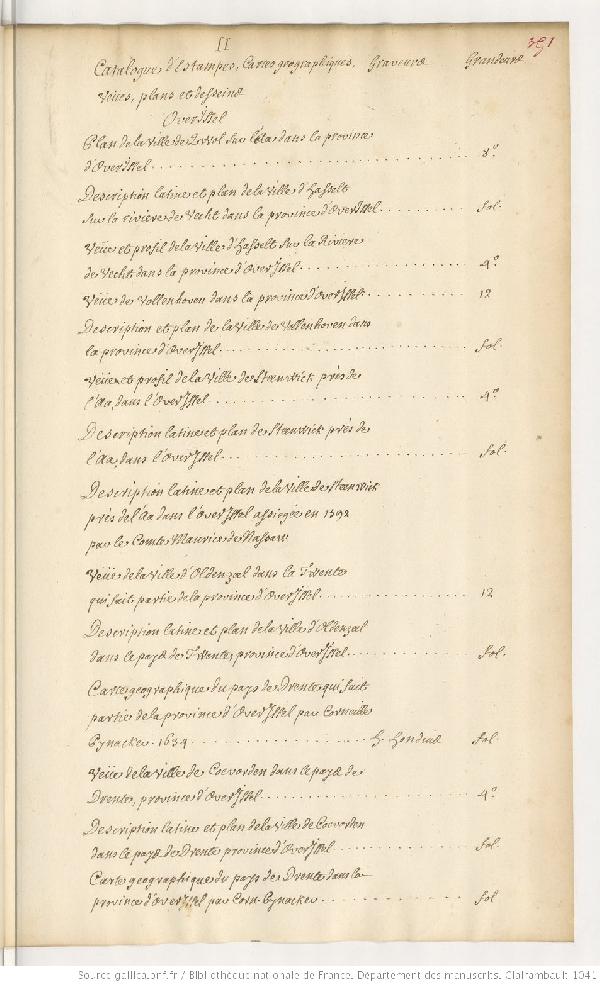 II
351
Catalogue d'Estampes, Cartes geographiques, Graveurs Grandeurs
Veües, plans et desseins
OverIssel
Plan de la Ville de Zwol sur l'Aa dans la province
d'OverIssel .......... 8°
Description latine et plan de la Ville d'Hasselt
sur la riviere de Vecht dans la province d'OverIssel .......... fol.
Veüe et profil de la Ville d'Hasselt sur la Riviere
de Vecht dans la province d'OverIssel .......... 4°
Veüe de Vollenhoven dans la province d'OverIssel .......... 12
Description et plan de la Ville de Vollenhoven dans
la province d'OverIssel .......... fol.
Veüe et profil de la Ville de Steenwick près de
l'Aa, dans l'OverIssel .......... 4°
Description latine et plan de Steenwick près de
l'Aa, dans l'OverIssel .......... fol.
Description latine et plan de la Ville de Steenwick
près de l'Aa dans l'OverIssel assiegée en 1592
par le Comte Maurice de Nassau
Veüe de la Ville d'Oldenzeel dans la Twente
qui fait partie de la province d'OverIssel .......... 12
Description latine et plan de la Ville d'Oldenzeel
dans le pays de Twente, province d'OverIssel .......... fol.
Carte geographique du pays de Drente qui fait
partie de la province d'OverIssel par Corneille
Pynacker 1634 .......... H. Hondius fol.
Veüe de la Ville de Coevorden dans le pays de
Drente, province d'OverIssel .......... 4°
Description latine et plan de la Ville de Coevorden
dans le pays de Drente province d'OverIssel .......... fol.
Carte geographique du pays de Drente dans la
province d'OverIssel par Corn. Pynacker .......... fol
Source gallica.bnf.fr / Bibliothèque nationale de France. Département des manuscrits. Clairambault 1041